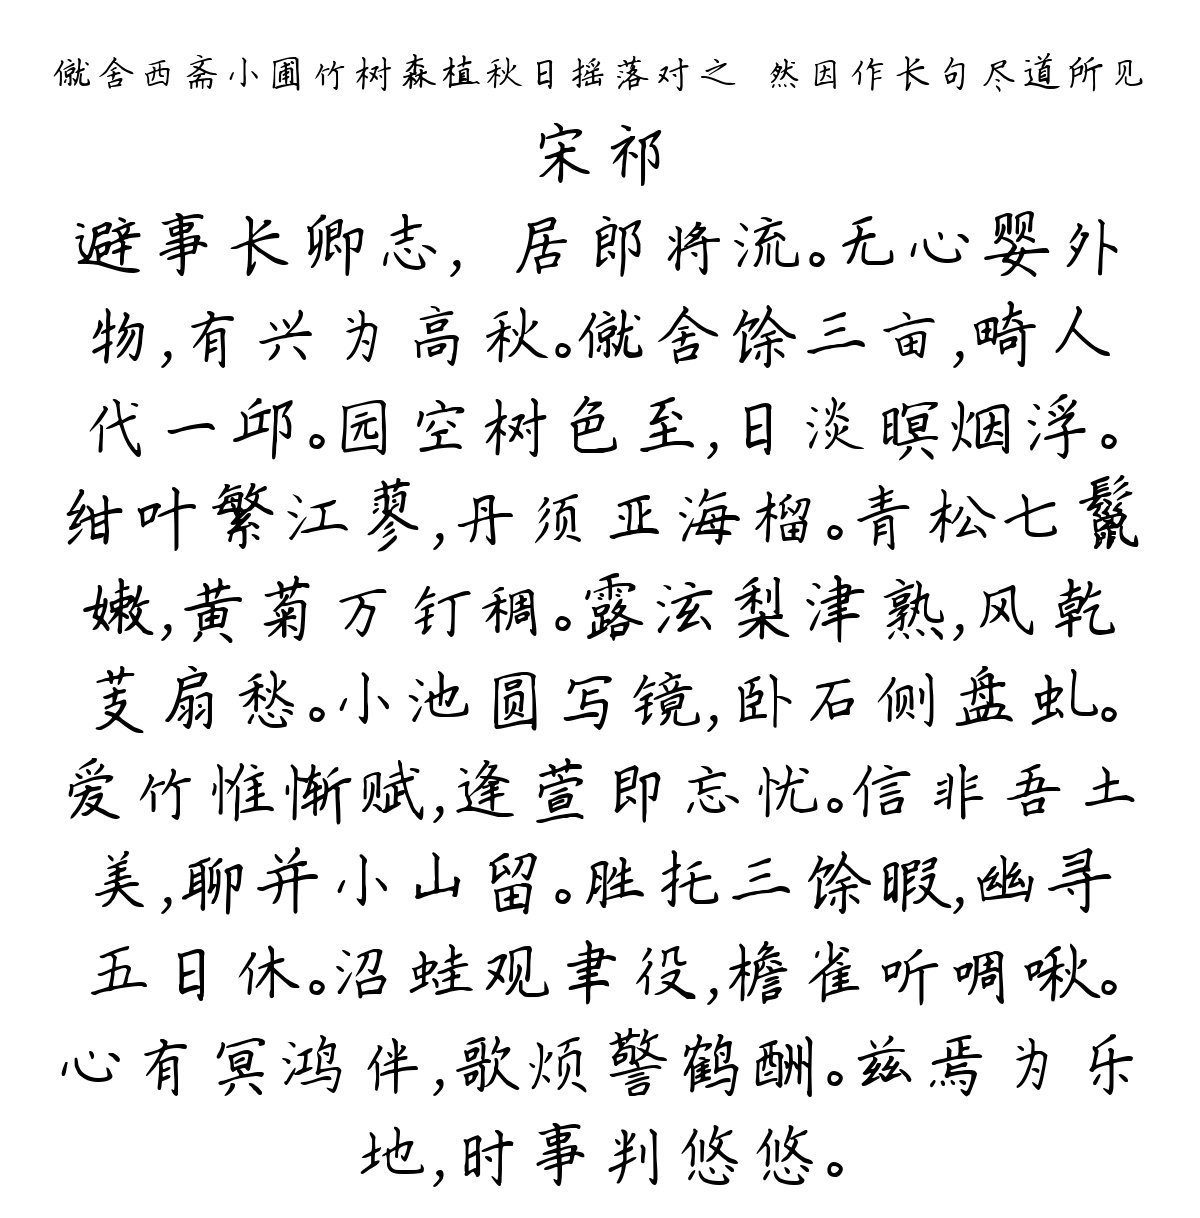 僦舍西斋小圃竹树森植秋日摇落对之 然因作长句尽道所见
宋祁
避事长卿志，居郎将流。无心婴外
物，有兴为高秋。僦舍馀三亩，畸人
代一邱。园空树色至，日淡暝烟浮。
绀叶繁江蓼，丹须亚海榴。青松七鬣
嫩，黄菊万钉稠。露泫梨津熟，风乾
芰扇愁。小池圆写镜，卧石侧盘虬。
爱竹惟惭赋，逢萱即忘忧。信非吾土
美，聊并小山留。胜托三馀暇，幽寻
五日休。沼蛙观聿役，檐雀听啁啾。
心有冥鸿伴，歌烦警鹤酬。兹焉为乐
地，时事判悠悠。